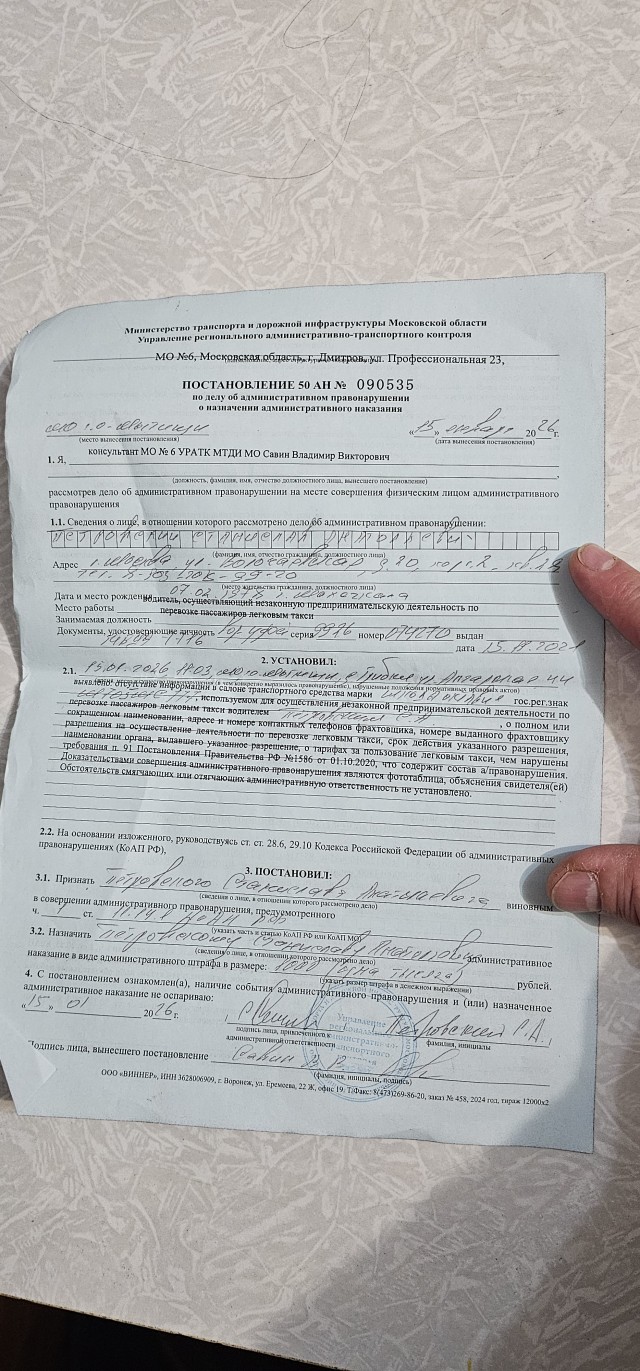 Министерство транспорта и дорожной инфраструктуры Московской области
Управление регионального административно-транспортного контроля
МО №6, Московская область, г. Дмитров, ул. Профессиональная 23,
ПОСТАНОВЛЕНИЕ 50 АН № 090535
по делу об административном правонарушении
о назначении административного наказания
«15» января 2026г.
(место вынесения постановления) (дата вынесения постановления)
консультант МО № 6 УРАТК МТДИ МО Савин Владимир Викторович
1. Я,
(должность, фамилия, имя, отчество должностного лица, вынесшего постановление)
рассмотрев дело об административном правонарушении на месте совершения физическим лицом административного
правонарушения
1.1. Сведения о лице, в отношении которого рассмотрено дело об административном правонарушении:
Петровский Станислав
(фамилия, имя, отчество гражданина, должностного лица)
Адрес г. Москва, ул.
(место жительства гражданина, должностного лица)
Дата и место рождения 07.02.
водитель, осуществляющий незаконную предпринимательскую деятельность по
Место работы
перевозке пассажиров легковым такси
Занимаемая должность
Документы, удостоверяющие личность серия 9916 номер выдан
дата
2. УСТАНОВИЛ:
2.1. 15.01.2026
выявлено: отсутствие информации в салоне транспортного средства марки гос.рег.знак
, используемом для осуществления незаконной предпринимательской деятельности по
перевозке пассажиров легковым такси водителем , о полном или
сокращенном наименовании, адресе и номере контактных телефонов фрахтовщика, номере выданного фрахтовщику
разрешения на осуществление деятельности по перевозке легковым такси, срок действия указанного разрешения,
наименовании органа, выдавшего указанное разрешение, о тарифах за пользование легковым такси, чем нарушены
требования п. 91 Постановления Правительства РФ №1586 от 01.10.2020, что содержит состав а/правонарушения.
Доказательствами совершения административного правонарушения являются фототаблица, объяснения свидетеля(ей)
Обстоятельств смягчающих или отягчающих административную ответственность не установлено.
2.2. На основании изложенного, руководствуясь ст. ст. 28.6, 29.10 Кодекса Российской Федерации об административных
правонарушениях (КоАП РФ),
3. ПОСТАНОВИЛ:
3.1. Признать Петровского Станислава Анатольевича виновным
(сведения о лице, в отношении которого рассмотрено дело)
в совершении административного правонарушения, предусмотренного
ч. ст. КоАП РФ
(указать часть и статью КоАП РФ или КоАП МО)
3.2. Назначить Петровскому Станиславу Анатольевичу административное
(сведения о лице, в отношении которого рассмотрено дело)
наказание в виде административного штрафа в размере: 1000 (одна тысяча) рублей.
(указать размер штрафа в денежном выражении)
4. С постановлением ознакомлен(а), наличие события административного правонарушения и (или) назначенное
административное наказание не оспариваю:
«15» 01 2026г. Петровский С.А.
подпись лица, привлеченного к административной ответственности фамилия, инициалы
Подпись лица, вынесшего постановление Савин В.В.
(фамилия, инициалы, подпись)
ООО «ВИННЕР», ИНН 3628006909, г. Воронеж, ул. Еремеева, 22 Ж, офис 19. Т./Факс: 8(473)269-86-20, заказ № 458, 2024 год, тираж 12000х2